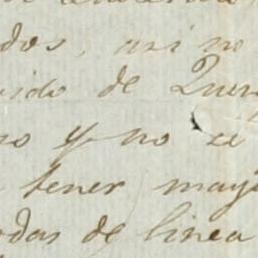 dos, asi no
ido de Quer
no y no se
tener may
odas de linea